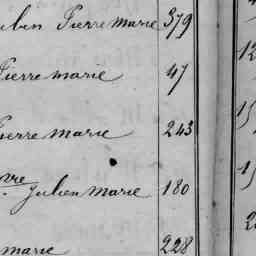 Pierre marie 379
Pierre marie 47
Pierre marie 243
vre Julien Marie 180
marie 228